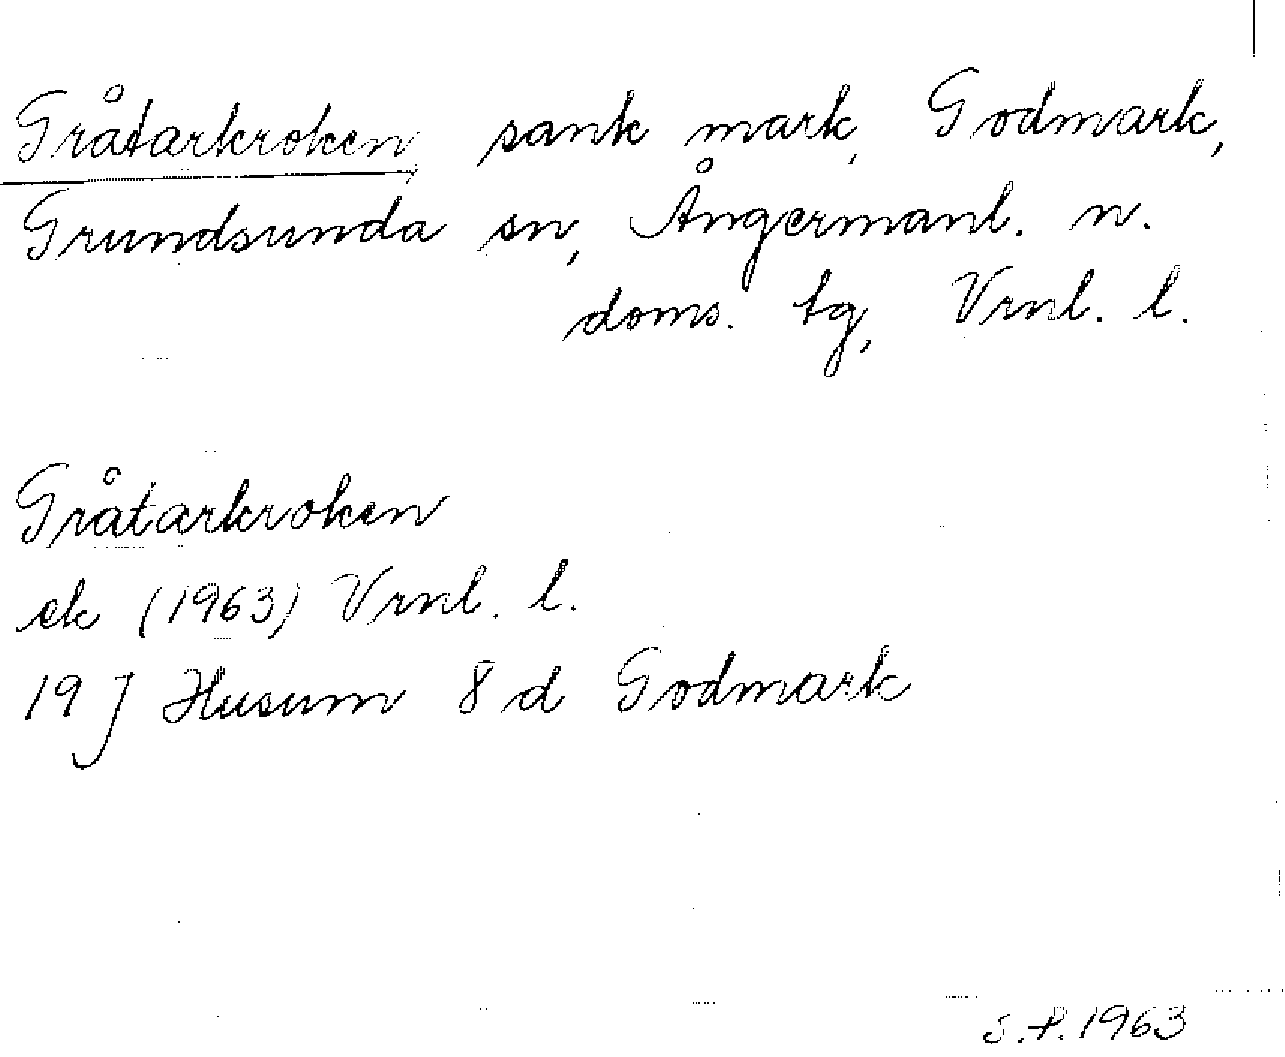 Gråtarkroken, sank mark, Godmark,
Grundsunda sn, Ångermanl. n.
doms. tg, Vrnl. l.
Gråtarkroken
ek (1963) Vrnl. l.
19 J Husum 8 d Godmark
S.P. 1963